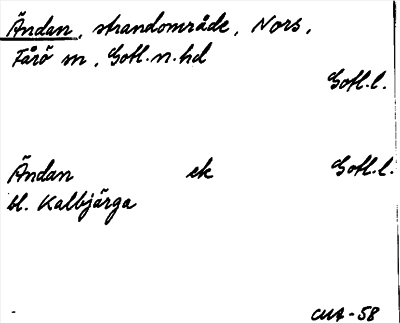 Ändan, strandområde, Nors,
Fårö sn, Gotl. n. hd
Gotl.l.
Ändan ek Gotl.l.
bl. Kalbjärga
CMA-58